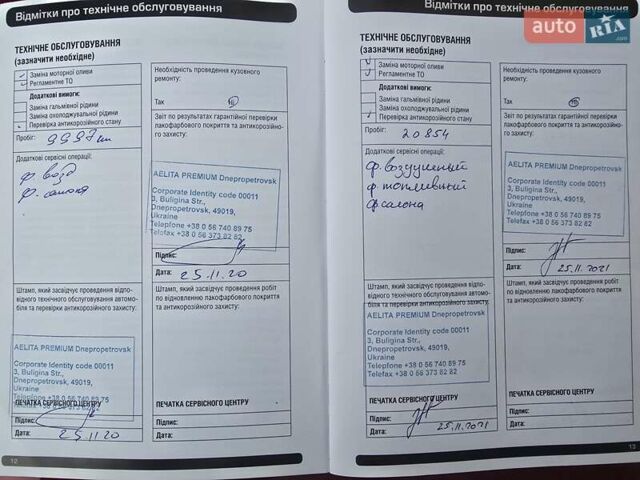 Відмітки про технічне обслуговування
ТЕХНІЧНЕ ОБСЛУГОВУВАННЯ
(зазначити необхідне)
Заміна моторної оливи
Регламентне ТО
Додаткові вимоги:
Заміна гальмівної рідини
Заміна охолоджувальної рідини
Перевірка антикорозійного стану
Пробіг: 9997 км
Додаткові сервісні операції:
ф. возд
ф. салона
Штамп, який засвідчує проведення відпо-
відного технічного обслуговування автомо-
біля та перевірки антикорозійного захисту:
AELITA PREMIUM Dnepropetrovsk
Corporate Identity code 00011
3, Buligina Str.,
Dnepropetrovsk, 49019,
Ukraine
Telepfone +38 0 56 740 89 75
ПЕЧАТКА СЕРВІСНОГО ЦЕНТРУ
Підпис:
Дата: 25.11.20
12
Необхідність проведення кузовного
ремонту:
Так
Звіт по результатах гарантійної перевірки
лакофарбового покриття та антикорозійно-
го захисту:
AELITA PREMIUM Dnepropetrovsk
Corporate Identity code 00011
3, Buligina Str.,
Dnepropetrovsk, 49019,
Ukraine
Telepfone +38 0 56 740 89 75
Telefax +38 0 56 373 82 82
Підпис:
Дата: 25.11.20
Штамп, який засвідчує проведення робіт
по відновленню лакофарбового покриття
та антикорозійного захисту:
ПЕЧАТКА СЕРВІСНОГО ЦЕНТРУ
Підпис:
Дата:
Відмітки про технічне обслуговування
ТЕХНІЧНЕ ОБСЛУГОВУВАННЯ
(зазначити необхідне)
Заміна моторної оливи
Регламентне ТО
Додаткові вимоги:
Заміна гальмівної рідини
Заміна охолоджувальної рідини
Перевірка антикорозійного стану
Пробіг: 20854
Додаткові сервісні операції:
ф. воздушный
ф топливный
ф салона
Штамп, який засвідчує проведення відпо-
відного технічного обслуговування автомо-
біля та перевірки антикорозійного захисту:
AELITA PREMIUM Dnepropetrovsk
Corporate Identity code 00011
3, Buligina Str.,
Dnepropetrovsk, 49019,
Ukraine
Telepfone +38 0 56 740 89 75
Telefax +38 0 56 373 82 82
ПЕЧАТКА СЕРВІСНОГО ЦЕНТРУ
Підпис:
Дата: 25.11.2021
Необхідність проведення кузовного
ремонту:
Так
Звіт по результатах гарантійної перевірки
лакофарбового покриття та антикорозійно-
го захисту:
AELITA PREMIUM Dnepropetrovsk
Corporate Identity code 00011
3, Buligina Str.,
Dnepropetrovsk, 49019,
Ukraine
Telepfone +38 0 56 740 89 75
Telefax +38 0 56 373 82 82
Підпис:
Дата: 25.11.2021
Штамп, який засвідчує проведення робіт
по відновленню лакофарбового покриття
та антикорозійного захисту:
ПЕЧАТКА СЕРВІСНОГО ЦЕНТРУ
Підпис:
Дата:
13
auto RIA.com